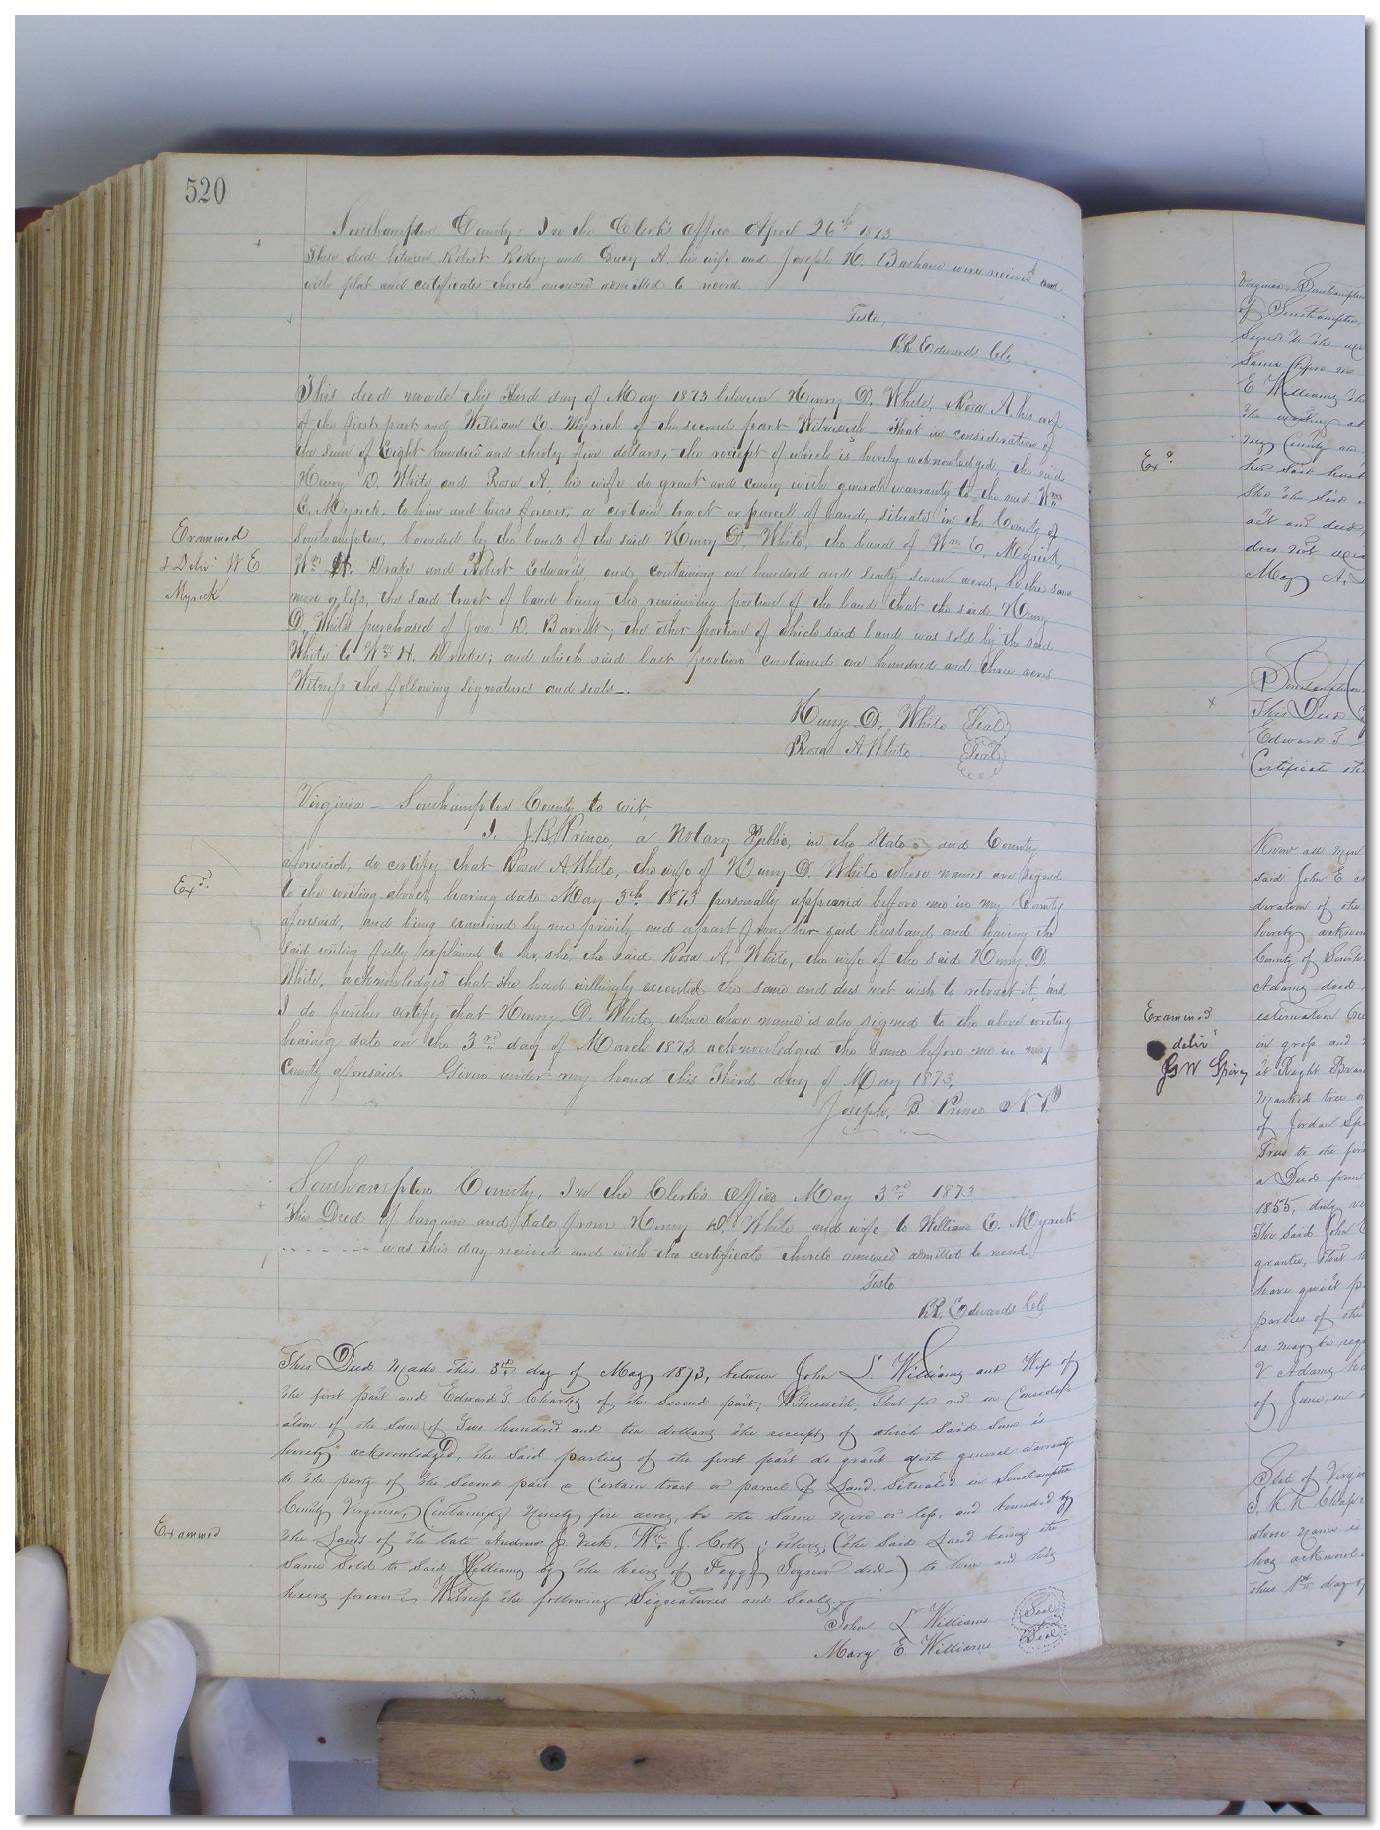 520
Southampton County: In the Clerk's Office April 26th 1873
These deed between Robert Ridley and Lucy A. his wife and Joseph H. were received and
with plat and certificates thereto annexed admitted to record
Teste,
L R Edwards Clk
This deed made this third day of May 1873 between Henry D. White, & Rosa A. his wife
of the first part and William E. Myrick of the second part Witnesseth That in consideration of
the sum of Eight hundred and thirty five dollars, the receipt of which is hereby acknowledged, the said
Henry D. White and Rosa A. his wife do grant and convey with general warranty to the said Wm
E. Myrick, to him and heirs forever, a certain tract or parcel of land, situate in the County of
Examined
Southampton, bounded by the lands of the said Henry D. White, the land of Wm E. Myrick,
& Deliv W E
Wm H. Drake and Robert Edwards, and containing one hundred and seven acres, be the same
Myrick
more or less, the said tract of land being the remaining portion of the land that the said Henry
D. White purchased of Jno. D. Barrett; the other portion of which said land was sold by the said
White to Wm H. Drake; and which said last portion contained one hundred and three acres
Witness the following signatures and seals.
Henry D. White (Seal)
Rosa A. White (Seal)
Virginia - Southampton County to wit,
I. J.B. Prince, a Notary Public, in the State and County
aforesaid, do certify that Rosa A. White, the wife of Henry D. White whose names are signed
Exd
to the writing above, bearing date May 3rd 1873 personally appeared before me in my County
aforesaid, and being examined by me privily and apart from her said husband and having the
said writing fully explained to her, she, the said Rosa A. White, the wife of the said Henry D.
White, acknowledged that she had willingly executed the same and does not wish to retract it, and
I do further certify that Henry D. White, whose whose name is also signed to the above writing
bearing date on the 3rd day of March 1873 acknowledged the same before me in my
County aforesaid. Given under my hand this Third day of May 1873.
Joseph. B Prince N.P.
Southampton County, In the Clerk's Office May 3rd 1873
This Deed of bargain and Sale from Henry D. White and wife to William E. Myrick
was this day received and with the certificate thereto annexed admitted to record
Teste
L R. Edwards Clk
This Deed made this 3rd day of May 1873, between John L. Williams and Wife of
the first part and Edward T. Charles of the second part; Witnesseth, That for and in Consider-
ation of the Sum of Two hundred and ten dollars the receipt of which Said Sum is
hereby acknowledged, the Said parties of the first part do grant with general warranty
to the party of the Second part a Certain tract or parcel of Land Situated in Southampton
County Virginia, Containing Ninety five acres, be the Same more or less, and bounded by
Examined
the Lands of the late Andrew J. Wm J. Cobb & others; (the Said Land being the
Same Sold to Said Williams by the heirs of Peggy Joyner decd) to him and his
heirs forever. Witness the following Signatures and Seals.
John L Williams (Seal)
Mary E Williams (Seal)
Virginia Southampton
of Southampton,
Signed to the
Same before me
E Williams the
the writing
Exd
my County
her Said husb
She the Said
act and deed,
does not
May A.
Southampton
x
This Deed
Edward T
Certificate
Know all men
said John E
deration of the
hereby acknow
County of South
Adams deed
Examined
estimation
deliv
in gross and
G W Spivey
at Right
marked tree
of Jordan
Trees to the
a Deed from
1855, duly
The Said John
grantee, that
have quiet
parties of the
as may be req
V Adams
of June, in
State of Virgin
J. K R
whose name is
has acknowl
this 1st day of